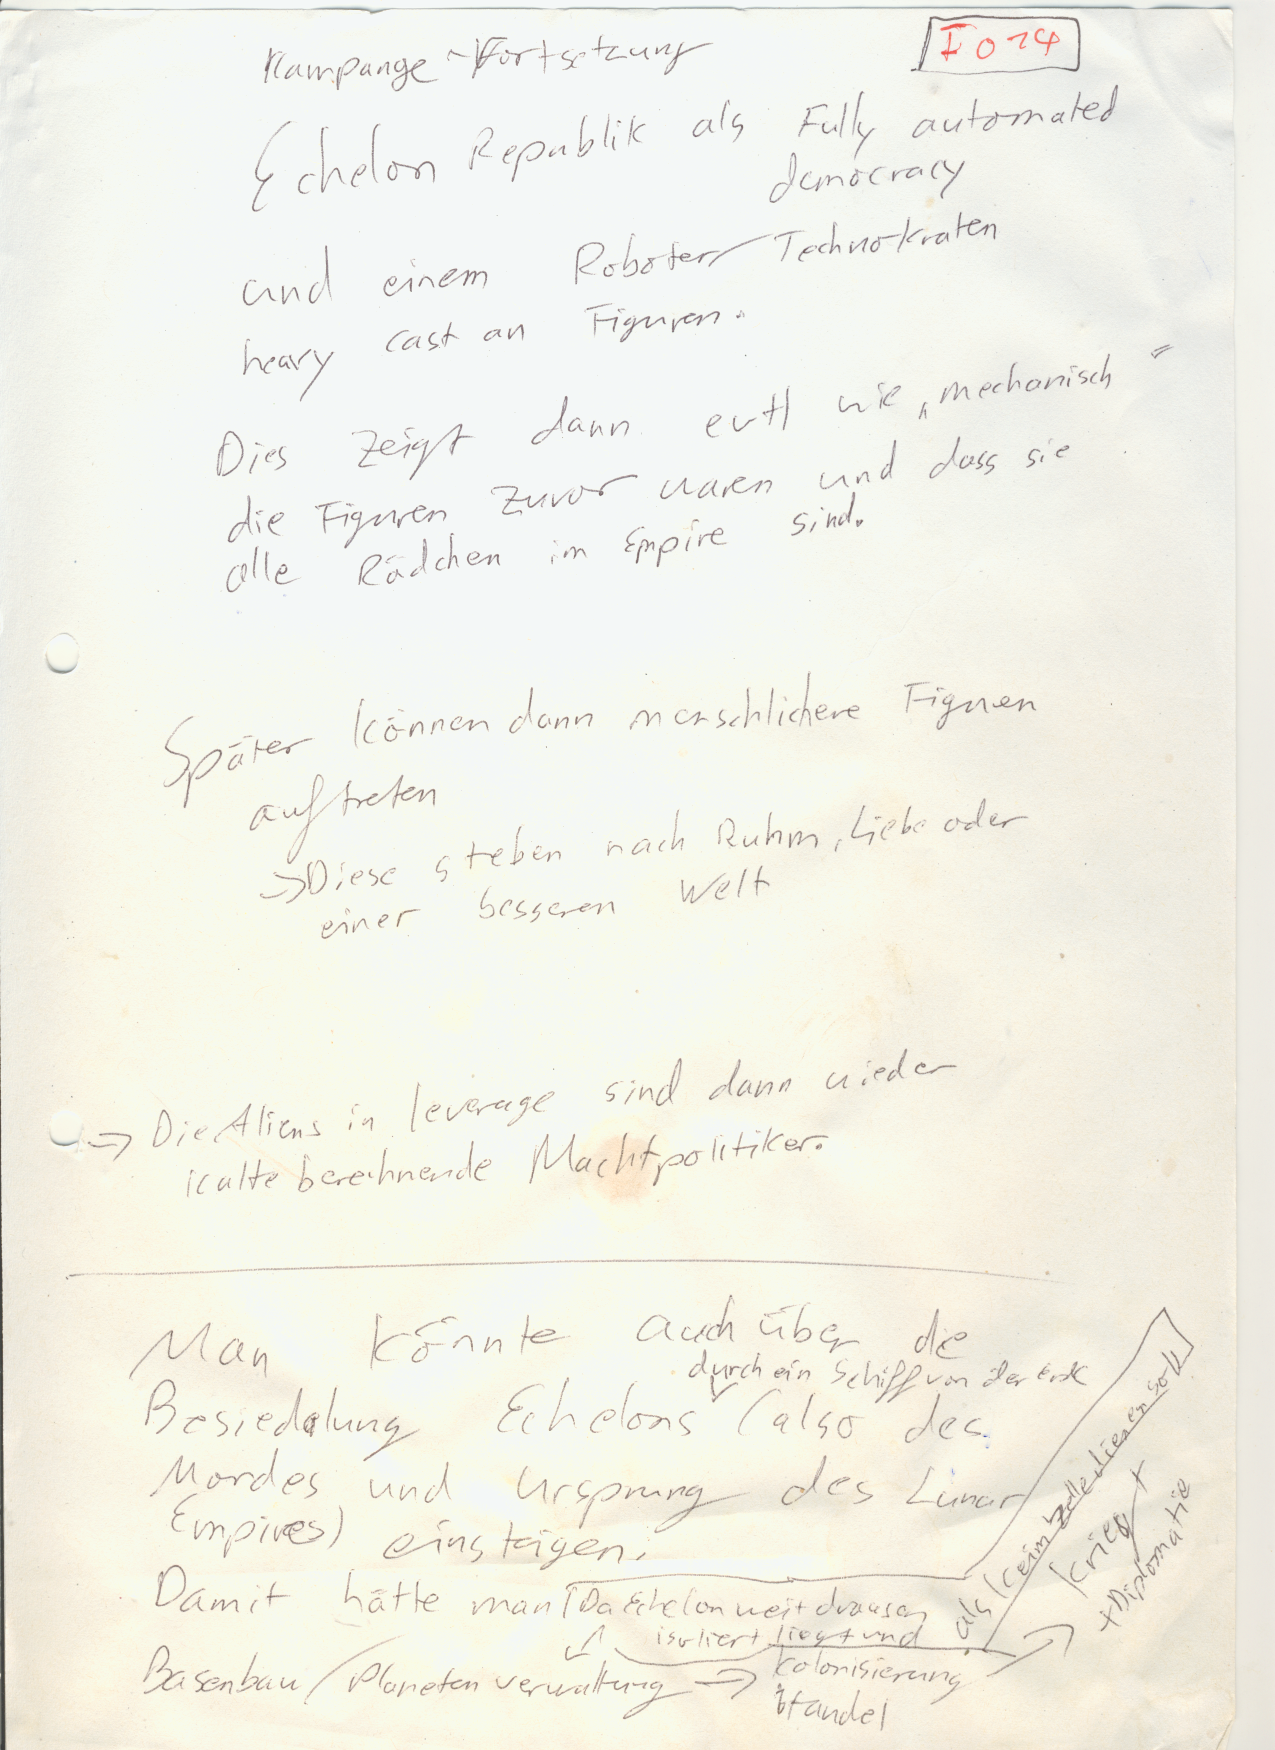 Kampange-Fortsetzung
I014
Echelon Republik als Fully automated
democracy
und einem Roboter/Technokraten
heavy cast an Figuren.
Dies zeigt dann evtl wie „mechanisch"
die Figuren zuvor waren und dass sie
alle Rädchen im Empire sind.
Später können dann menschlichere Figuren
auftreten
→ Diese steben nach Ruhm, Liebe oder
einer besseren Welt
→ Die Aliens in leverage sind dann wieder
kalte berechnende Machtpolitiker.
Man könnte auch über die
durch ein Schiff von der Erde
Besiedelung Echelons (also des
und Ursprung des Lunar
Empires) einsteigen.
Damit hätte man (Da Echelon weit draussen
isoliert liegt und
als Keimzelle dienen soll
Basenbau/Planetenverwaltung → Kolonisierung
Handel
→ Krieg +
+ Diplomatie